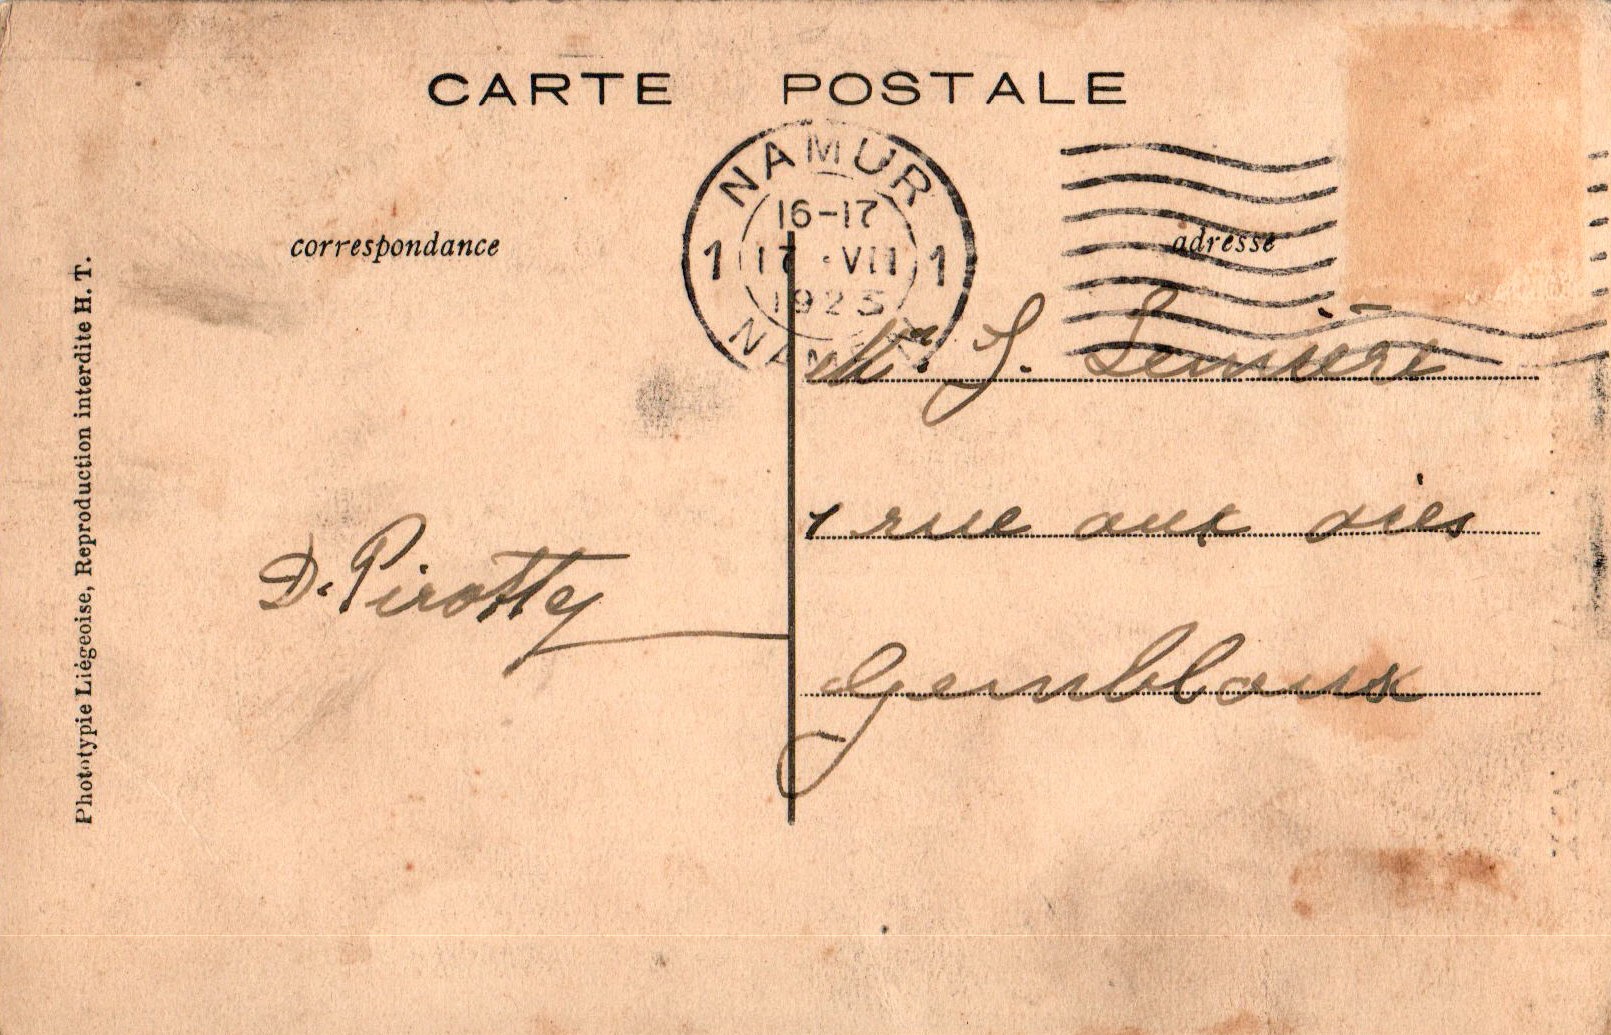 CARTE POSTALE
NAMUR
16-17
1 17 ·VII 1
1923
NAMUR
correspondance
adresse
Phototypie Liégeoise, Reproduction interdite H. T.
D. Pirotte
Mr. J.
rue aux oies
Gembloux